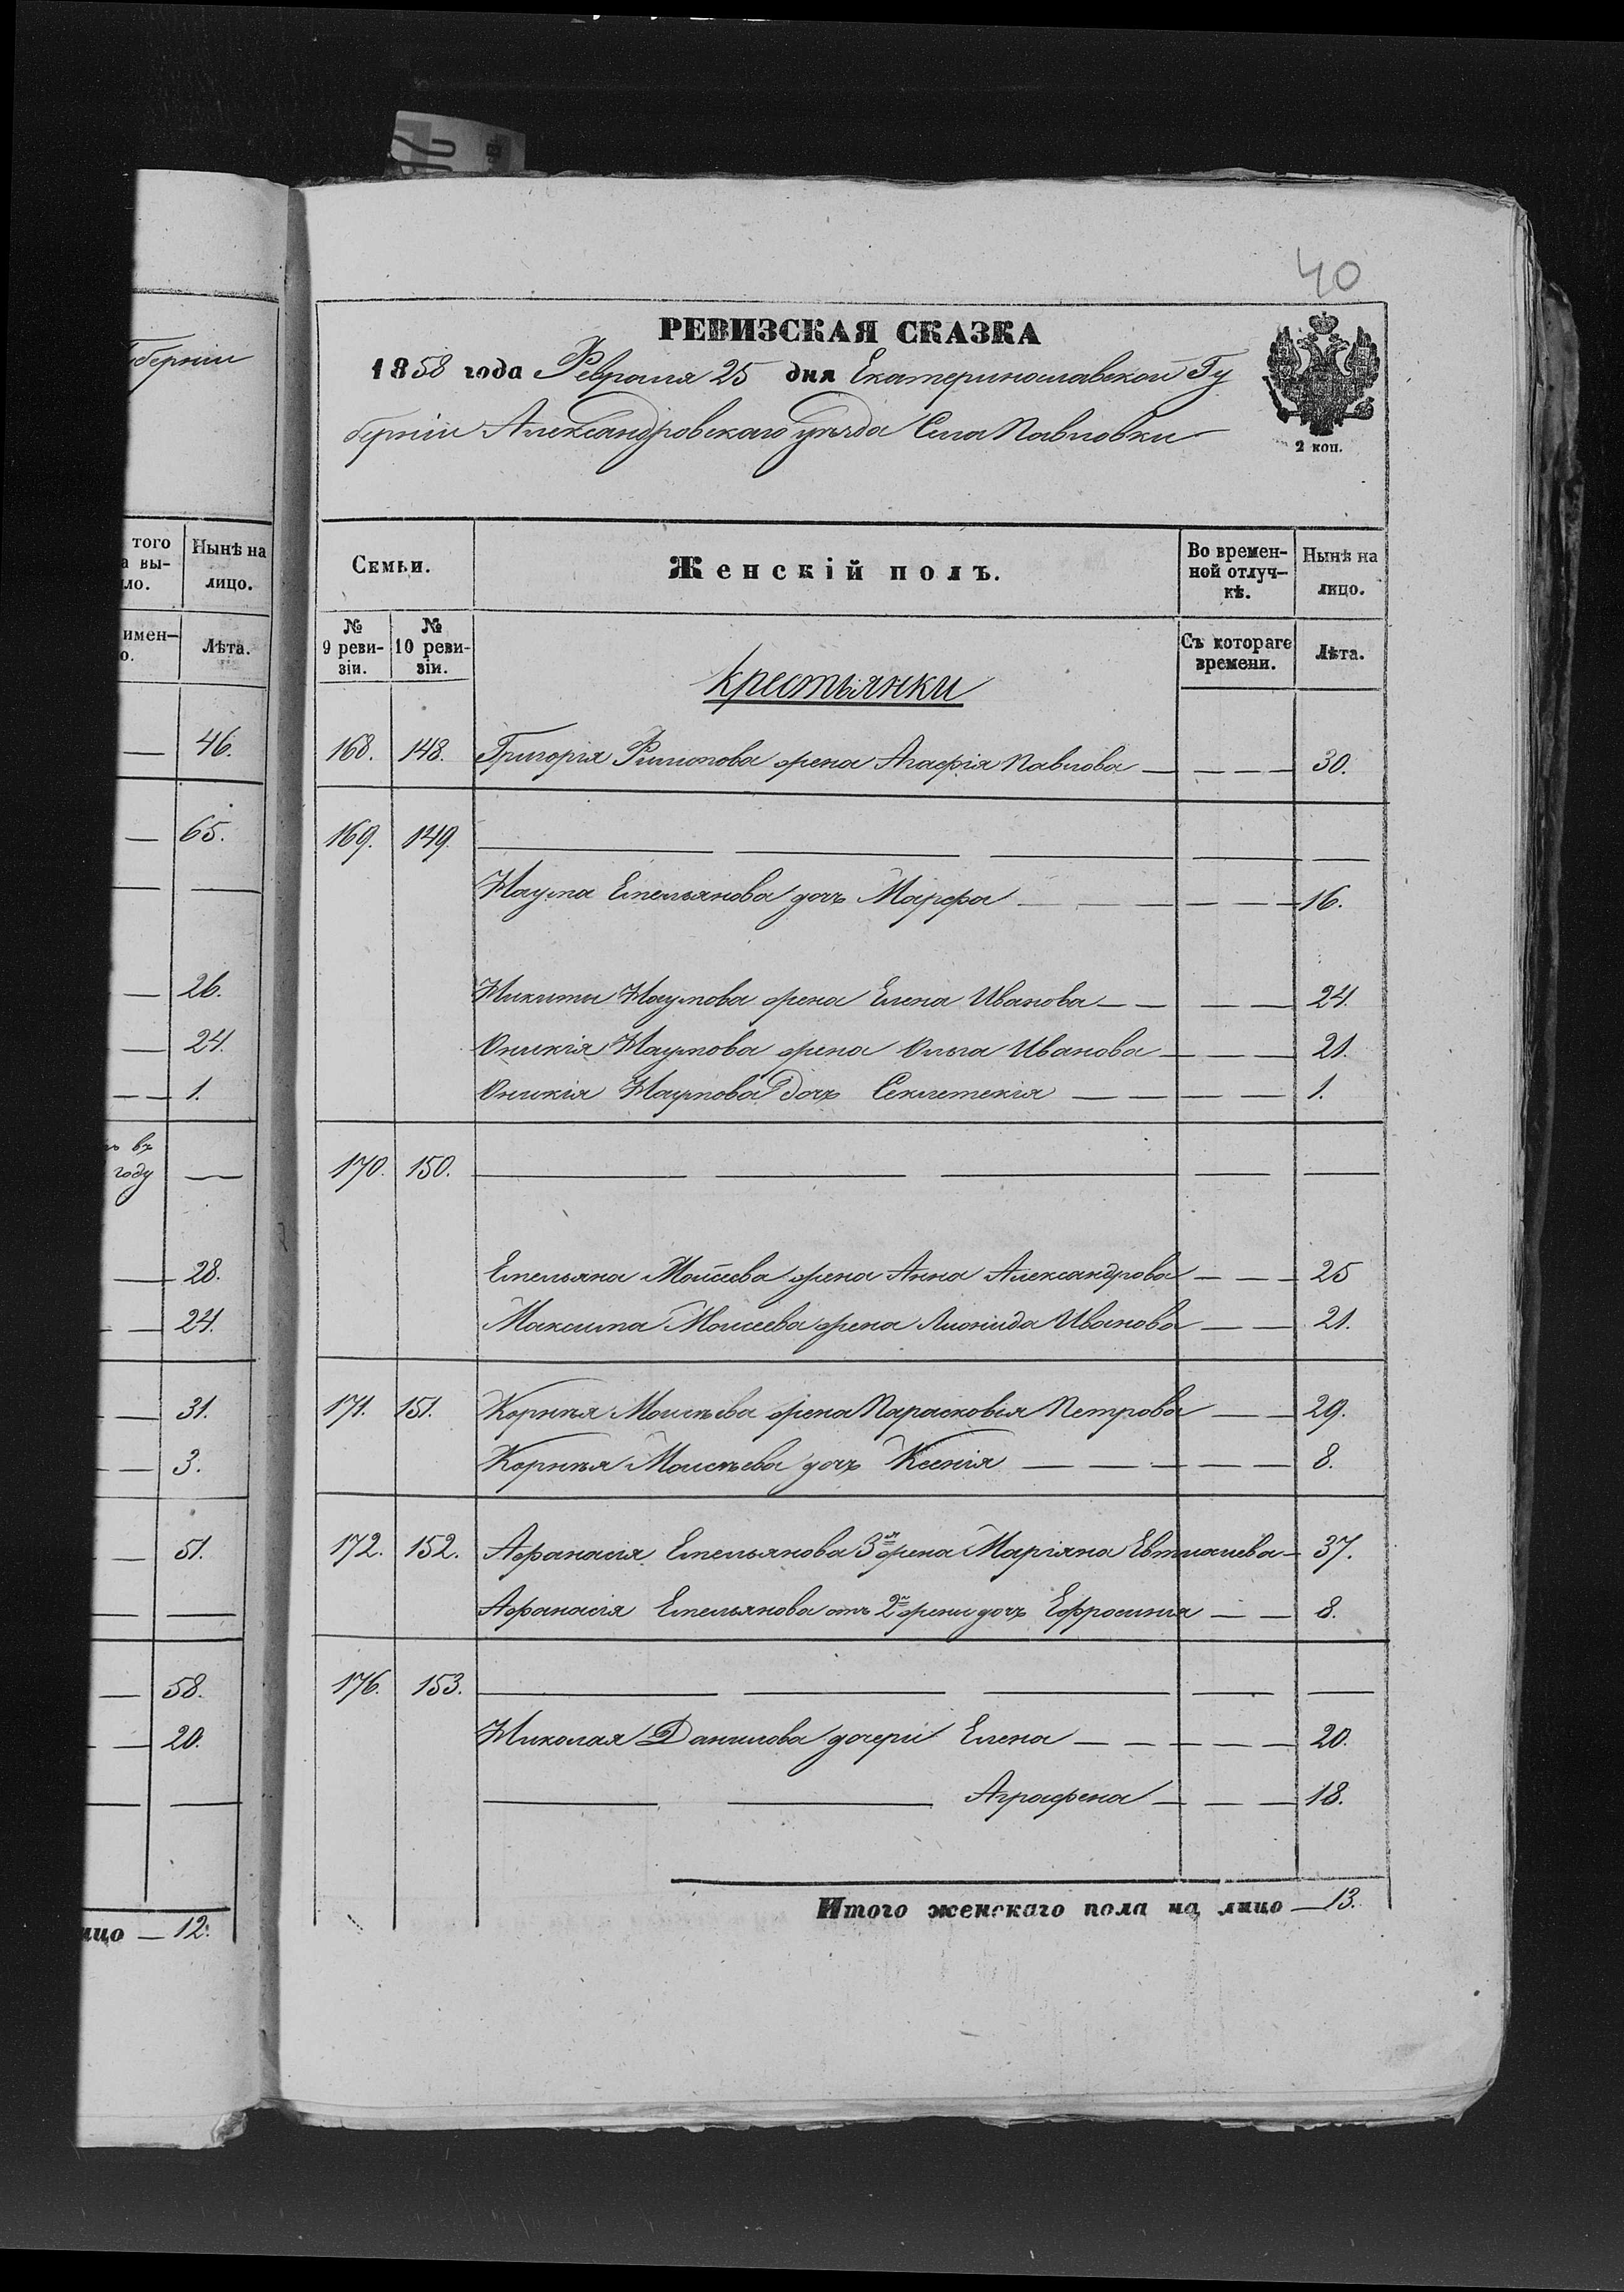 40
РЕВИЗСКАЯ СКАЗКА
1858 года Февраля 25 дня Екатеринославской Гу
берніи Александровскаго уѣзда Села Павловки
2 коп.
берніи
того Нынѣ на
а вы-
ло. лицо.
имен-
о. Лѣта.
Семьи. Женскій полъ. Во времен- Нынѣ на
ной отлуч- лицо.
кѣ.
№ № Съ котораго Лѣта.
9 реви- 10 реви- времени.
зіи. зіи.
крестьянки
46.
65.
26.
24.
1.
въ
году
28.
24.
31.
3.
51.
58.
20.
лицо — 12.
168. 148. Григорія Филипова жена Агафія Павлова — 30.
169. 149.
Наума Емельянова дочь Марфа — 16.
Никиты Наумова жена Елена Иванова — 24.
Оникія Наумова жена Ольга Иванова — 21.
Оникія Наумова дочь Секлетекія — 1.
170. 150.
Емельяна Моісеева жена Анна Александрова — 25
Максима Моисеева жена Иванова — 21.
171. 151. Корнѣя Моисѣева жена Парасковія Петрова — 29.
Корнѣя Моисѣева дочь Ксенія — 8.
172. 152. Афанасія Емельянова 3я жена Маріяна — 37.
Афанасія Емельянова отъ 2й жени дочь Ефросинія — 8.
176. 153.
Николая Данилова дочери Елена — 20.
Аграфена — 18.
Итого женскаго пола на лицо — 13.